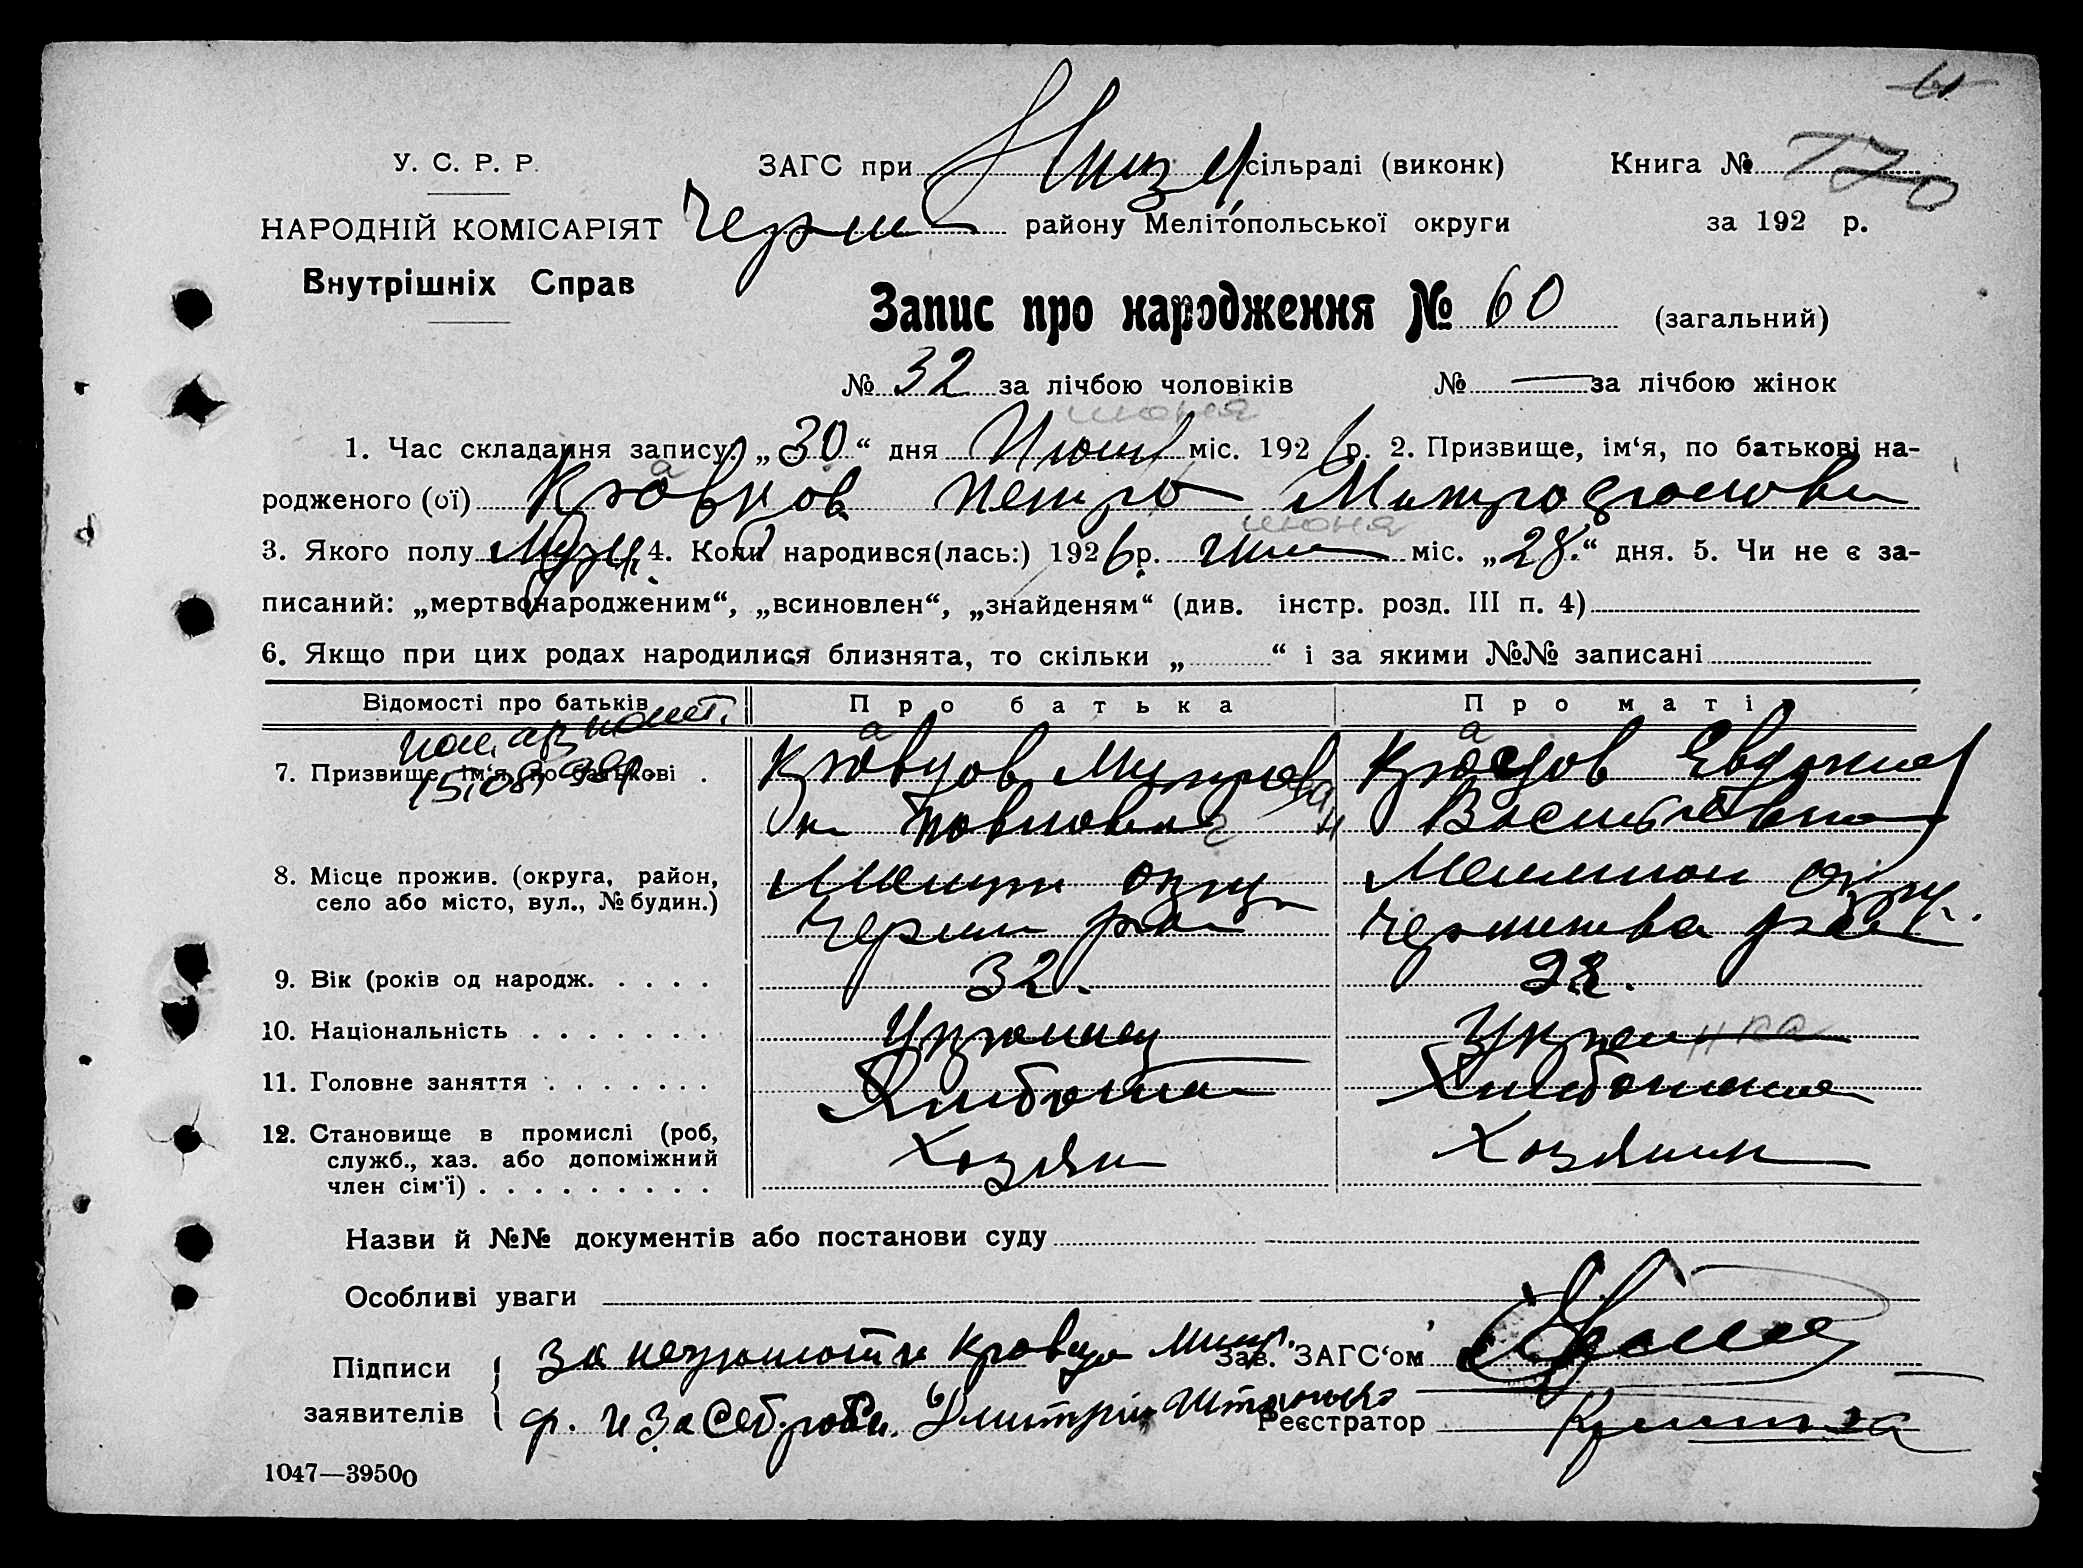 У. С. Р. Р.
ЗАГС при Низ сільраді (виконк)
Книга №
НАРОДНІЙ КОМІСАРІЯТ
Черни району Мелітопольської округи
за 192 р.
Внутрішніх Справ
Запис про народження № 60 (загальний)
№ 32 за лічбою чоловіків № — за лічбою жінок
июня
1. Час складання запису: „30“ дня Июня міс. 1926 р. 2. Призвище, ім‘я, по батькові на-
родженого (ої) Кравцов Петро Митрофанови
июня
3. Якого полу Муж. 4. Коли народився(лась:) 1926 р. міс. „28.“ дня. 5. Чи не є за-
писаний: „мертвонародженим“, „всиновлен“, „знайденям“ (див. інстр. розд. III п. 4)
6. Якщо при цих родах народилися близнята, то скільки „ “ і за якими №№ записані
Відомості про батьків
Про батька
Про матір
7. Призвище, ім‘я, по батькові .
Кравцов Митрофан
Кравцов Евдокия
Васильевна
8. Місце прожив. (округа, район,
село або місто, вул., № будин.)
Мелит окру
Черни рай
Мелитоп окру.
9. Вік (років од народж. . . . .
32.
28.
10. Національність . . . . . . .
Украинец
Украинка
11. Головне заняття . . . . . . .
12. Становище в промислі (роб,
служб., хаз. або допоміжний
член сім‘ї) . . . . . . . . .
Хозяин
Хозяин
Назви й №№ документів або постанови суду
Особливі уваги
Підписи
заявителів
За неграмотн Кравцо Митр.
ф. и За Себ роби. Дмитрий
Зав. ЗАГС‘ом
Реєстратор
1047—39500